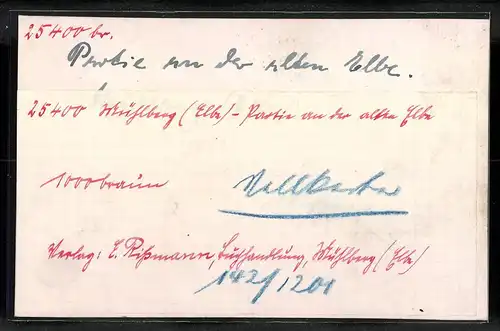 25400 br.
Partie an der alten Elbe.
25400 Mühlberg (Elbe) - Partie an der alten Elbe
1000 braun
Verlag: E. Rißmann, Buchhandlung, Mühlberg (Elbe)
142/1201